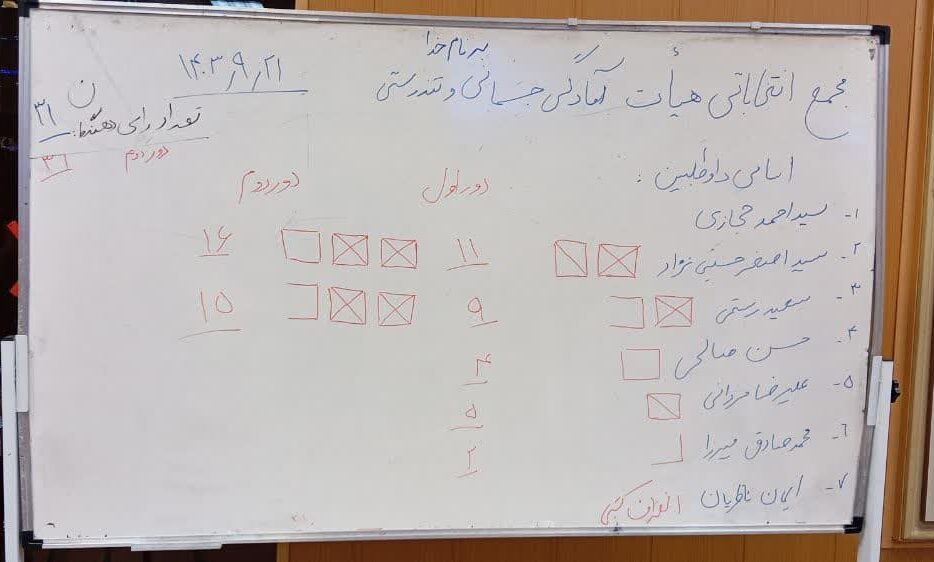 به نام خدا
مجمع انتخاباتی هیأت آمادگی جسمانی و تندرستی
۱۴۰۳٫۹٫۲۱
تعداد رای دهندگان: ۳۱
دور دوم ۳۱
اسامی داوطلبین:
دور اول دور دوم
۱- سید احمد حجازی
۲- سید اصغر حسینی نژاد ۱۱ ۱۶
۳- سعید رستمی ۹ ۱۵
۴- حسن صالحی ۴
۵- علیرضا مردانی ۵
۶- محمد صادق میرزا ۲
۷- ایمان ناظریان انصراف کتبی